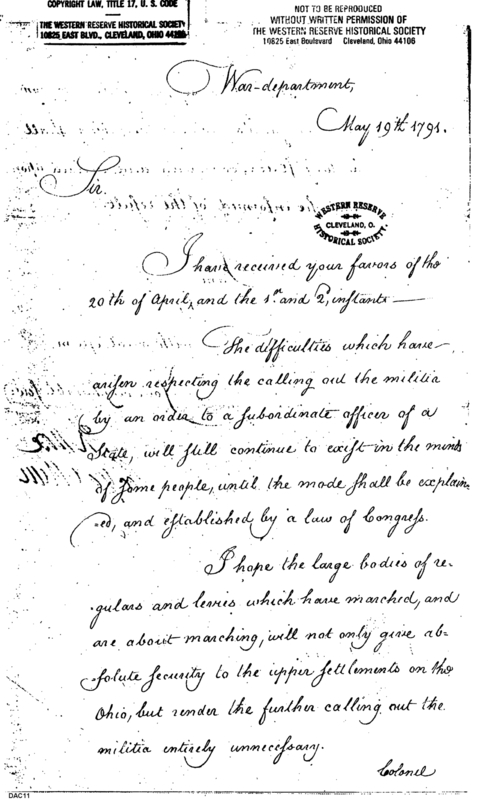 COPYRIGHT LAW, TITLE 17, U. S. CODE
THE WESTERN RESERVE HISTORICAL SOCIETY
10825 EAST BLVD., CLEVELAND, OHIO 44106
NOT TO BE REPRODUCED
WITHOUT WRITTEN PERMISSION OF
THE WESTERN RESERVE HISTORICAL SOCIETY
10825 East Boulevard Cleveland, Ohio 44106
War-department,
May 19th 1791.
Sir.
WESTERN RESERVE
CLEVELAND, O.
HISTORICAL SOCIETY.
I have received your favors of the
20th of April, and the 1st and 2, instant —
The difficulties which have
arisen respecting the calling out the militia
by an order to a subordinate officer of a
State, will still continue to exist in the minds
of some people, until the mode shall be explain-
-ed, and established by a law of Congress.
I hope the large bodies of re-
-gulars and levies which have marched, and
are about marching, will not only give ab-
-solute security to the upper settlements on the
Ohio, but render the further calling out the
militia entirely unnecessary.
Colonel
DAC11